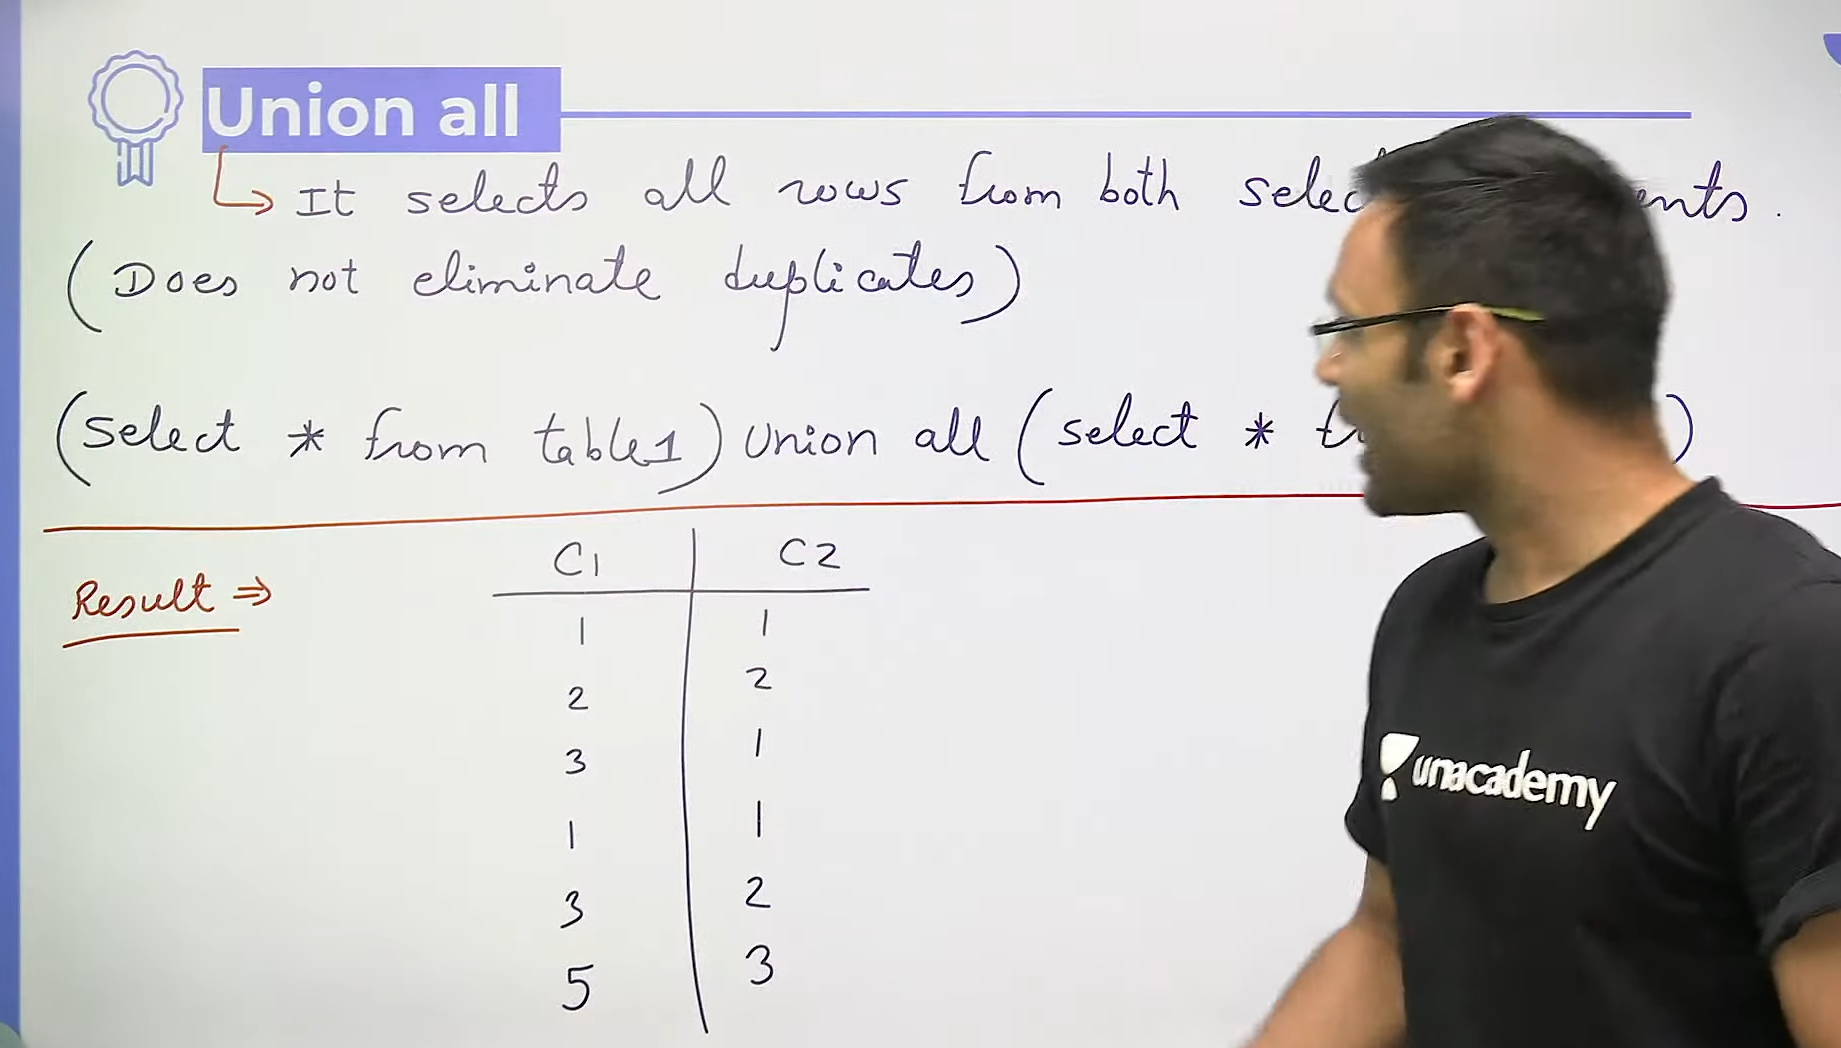 Union all
It selects all rows from both
(Does not eliminate duplicates)
(select * from table1) Union all (select *
Result ⇒
C1 C2
1 1
2 2
3 1
1 1
3 2
5 3
unacademy